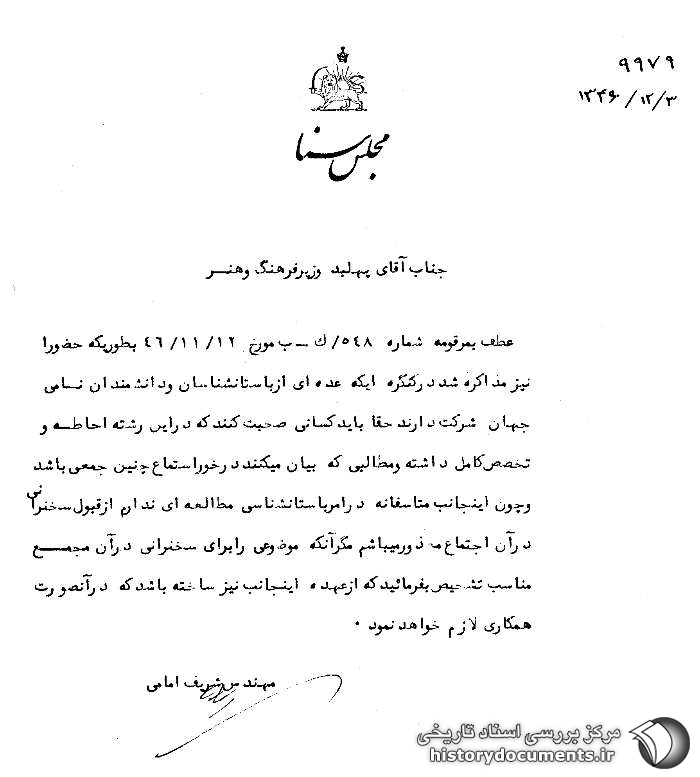 ۹۹۷۹
۱۳۴۶/۱۲/۳
مجلس سنا
جناب آقای پهلبد وزیر فرهنگ و هنر
عطف بمرقومه شماره ۵۴۸/ك ــ ب مورخ ۴۶/۱۱/۱۲ بطوریکه حضورا
نیز مذاکره شد در کنگره ایکه عده ای از باستانشناسان و دانشمندان نامی
جهان شرکت دارند حقا باید کسانی صحبت کنند که در این رشته احاطه و
تخصص کامل داشته و مطالبی که بیان میکنند در خور استماع چنین جمعی باشد
و چون اینجانب متاسفانه در امر باستانشناسی مطالعه ای ندارم از قبول سخنرانی
در آن اجتماع معذور میباشم مگر آنکه موضوعی را برای سخنرانی در آن مجمع
مناسب تشخیص بفرمائید که از عهده اینجانب نیز ساخته باشد که در آنصورت
همکاری لازم خواهد نمود ۰
مهندس شریف امامی
مرکز بررسی اسناد تاریخی
historydocuments.ir